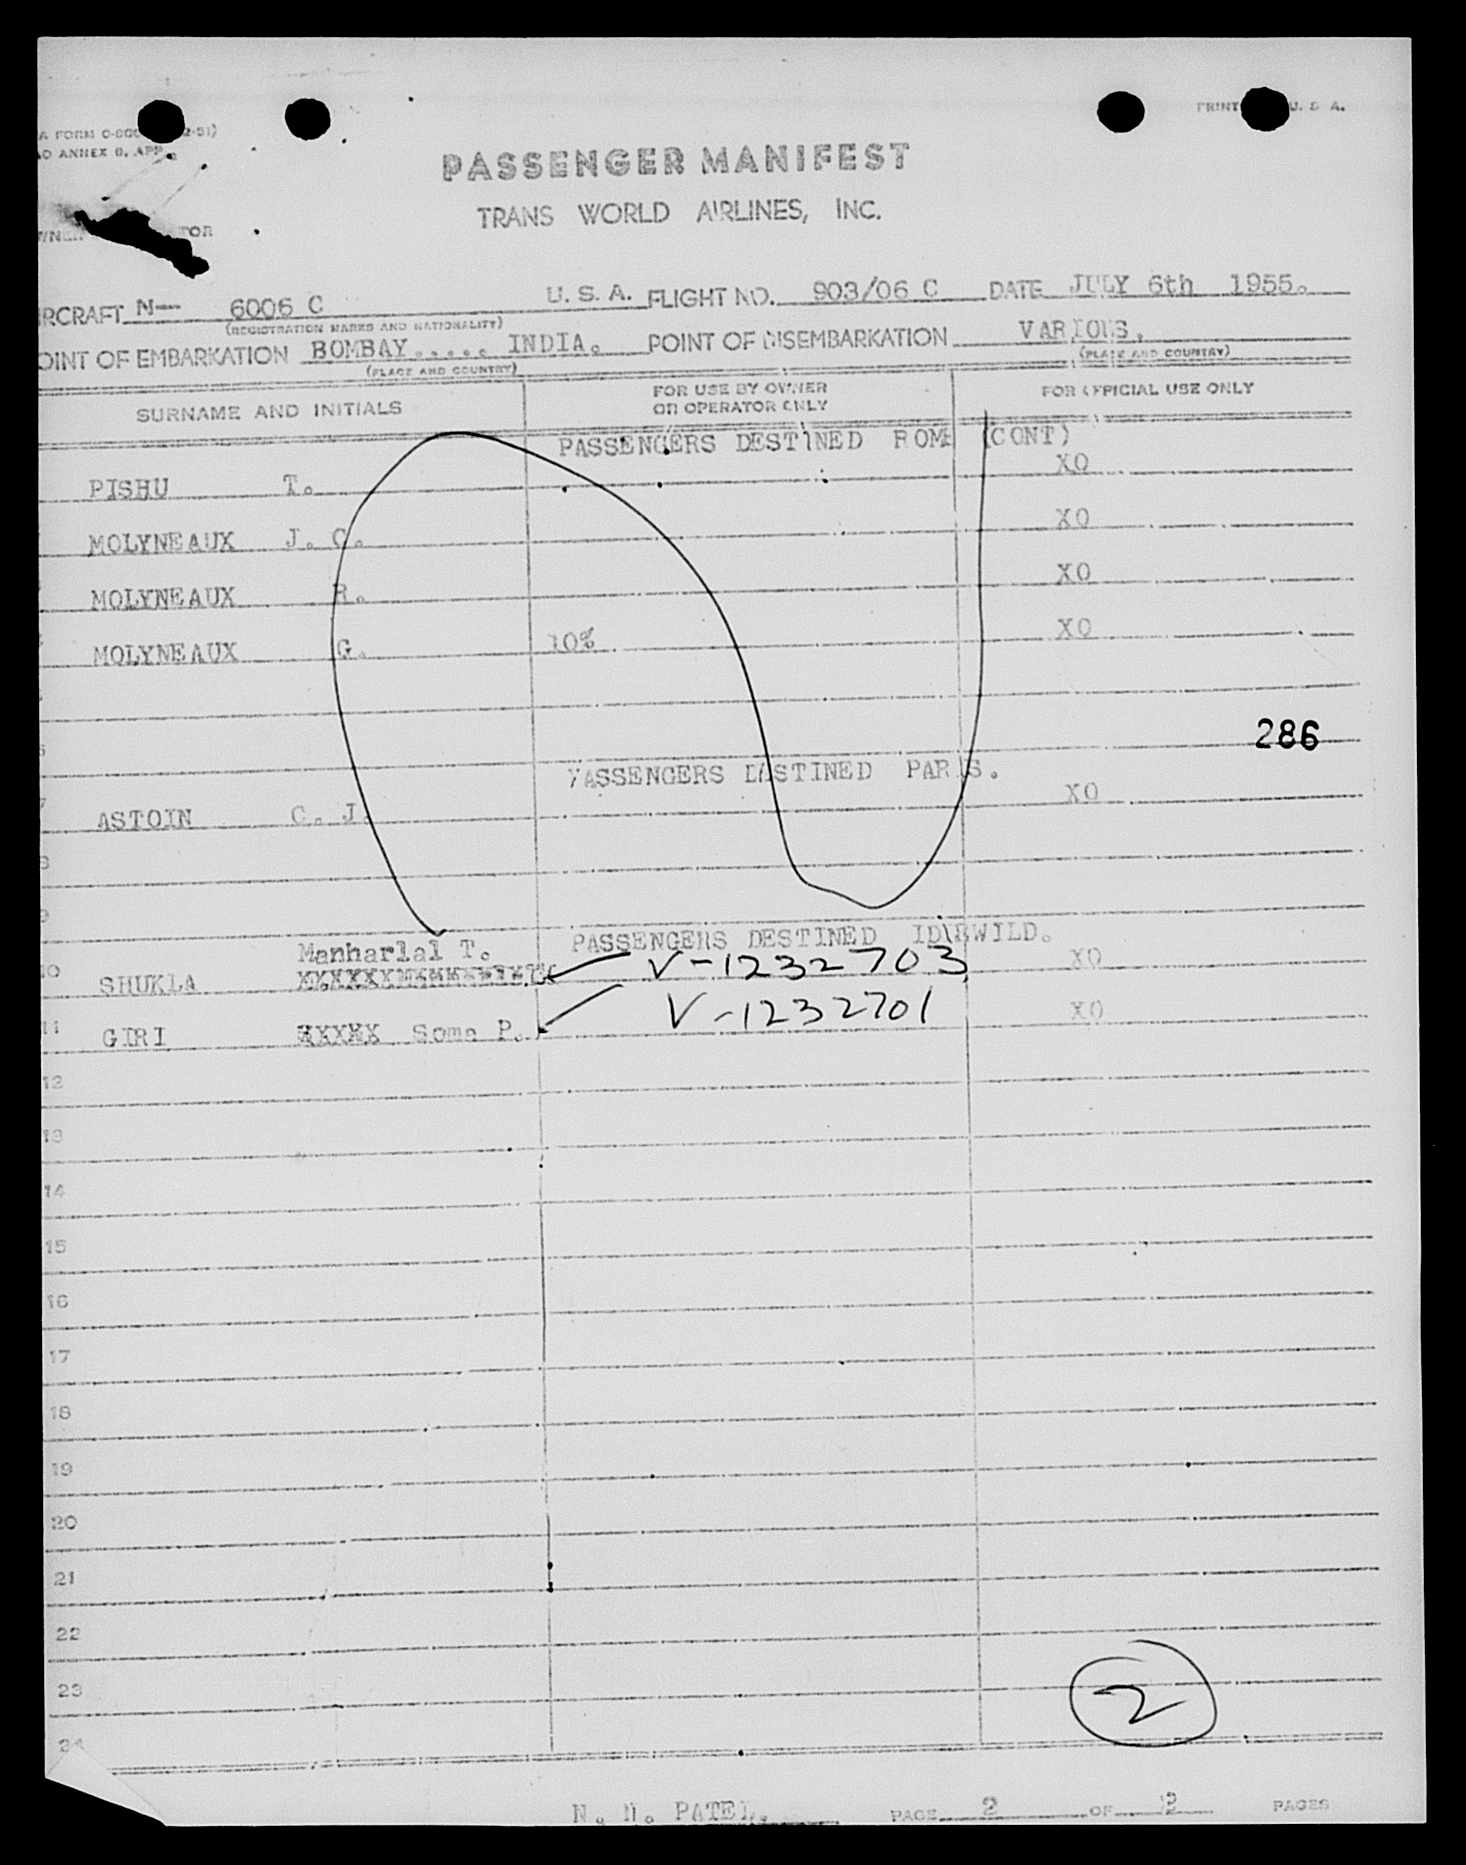 PRINT U. S A.
A FORM 2-51)
ANNEX 9, APP.
PASSENGER MANIFEST
TRANS WORLD AIRLINES, INC.
TOR
IRCRAFT N— 6006 C U. S. A. FLIGHT NO. 903/06 C DATE JULY 6th 1955.
(REGISTRATION MARKS AND NATIONALITY)
OINT OF EMBARKATION BOMBAY..... INDIA. POINT OF DISEMBARKATION VARIOUS.
(PLACE AND COUNTRY) (PLACE AND COUNTRY)
SURNAME AND INITIALS FOR USE BY OWNER OR OPERATOR ONLY FOR OFFICIAL USE ONLY
PASSENGERS DESTINED ROME (CONT)
PISHU T. XO
MOLYNEAUX J. C. XO
MOLYNEAUX R. XO
MOLYNEAUX G. 10% XO
286
PASSENGERS DESTINED PARIS.
7 ASTOIN C. J. XO
8
9
PASSENGERS DESTINED IDLEWILD.
Manharlal T.
10 SHUKLA V-1232703 XO
11 GIRI XXXXX Soma P. V-1232701 XO
12
13
14
15
16
17
18
19
20
21
22
23
2
24
N. N. PATEL. PAGE 2 OF 2 PAGES